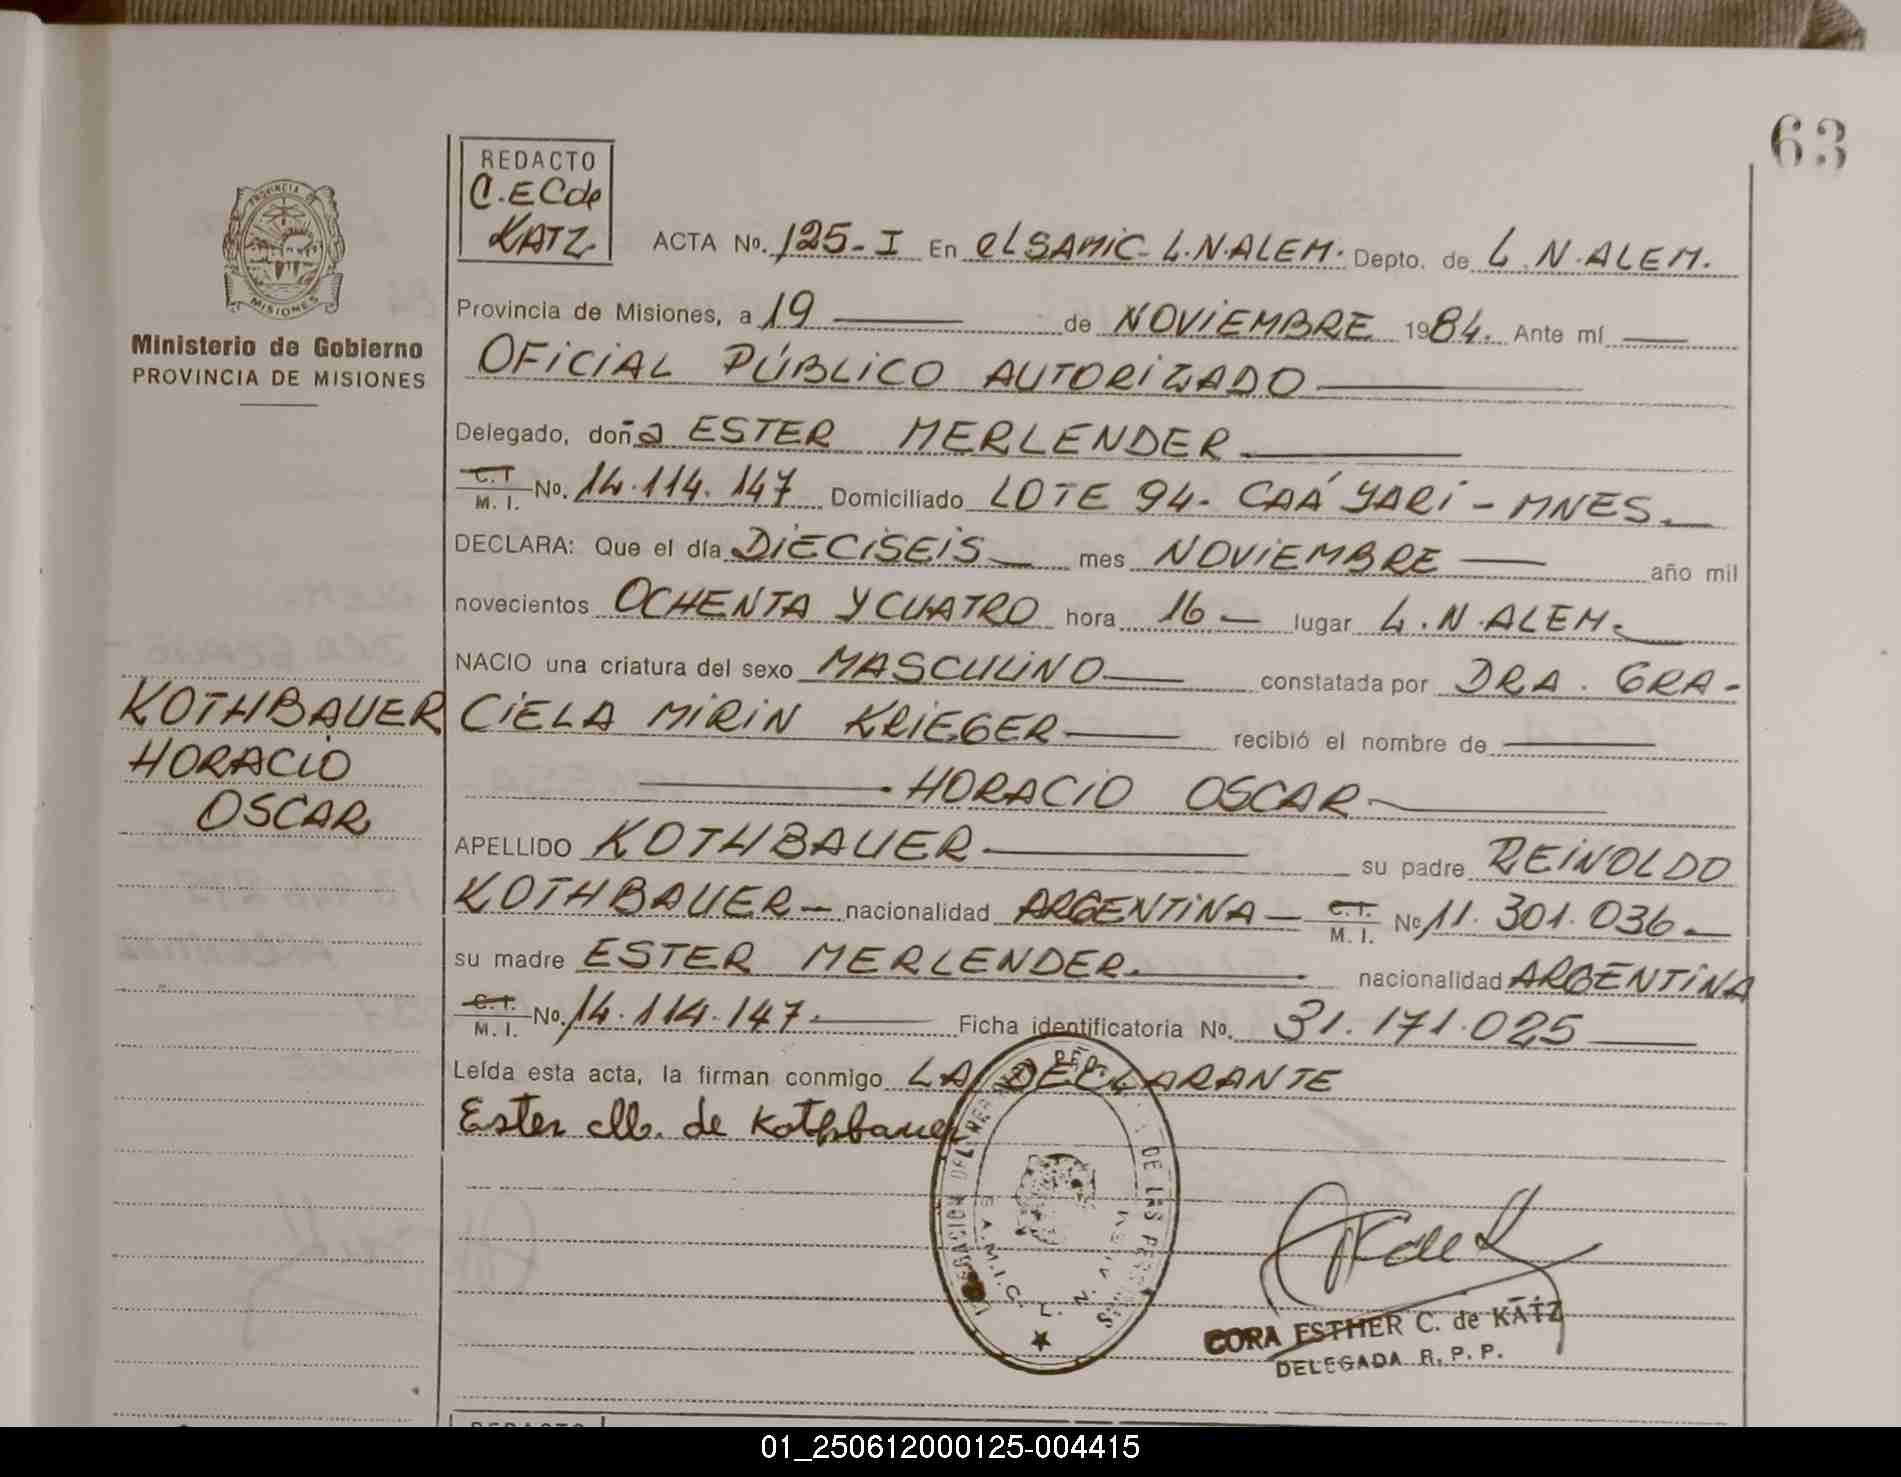 63
REDACTO
C.ECde
KATZ
PROVINCIA DE
MISIONES
Ministerio de Gobierno
PROVINCIA DE MISIONES
ACTA No. 125-I En el SAMIC- L.N.ALEM. Depto. de L.N.ALEM.
Provincia de Misiones, a 19 de NOVIEMBRE 1984. Ante mí
OFICIAL PÚBLICO AUTORIZADO
Delegado, doña ESTER MERLENDER
C.T. M. I. No. 14.114.147 Domiciliado LOTE 94- CAÁ YARI - MNES.
DECLARA: Que el día DIECISEIS mes NOVIEMBRE año mil
novecientos OCHENTA Y CUATRO hora 16 lugar L.N.ALEM.
NACIO una criatura del sexo MASCULINO constatada por DRA. GRA-
CIELA MIRIN KRIEGER recibió el nombre de
HORACIO OSCAR
KOTHBAUER
HORACIO
OSCAR
APELLIDO KOTHBAUER su padre REINOLDO
KOTHBAUER nacionalidad ARGENTINA C.T. M. I. No 11.301.036
su madre ESTER MERLENDER nacionalidad ARGENTINA
C.T. M. I. No. 14.114.147. Ficha identificatoria No. 31.171.025
Leída esta acta, la firman conmigo LA DECLARANTE
Ester M. de Kothbauer
DE LAS
S.A.M.I.C. L. N.
CORA ESTHER C. de KATZ
DELEGADA R. P. P.
REDACTO
01_250612000125-004415